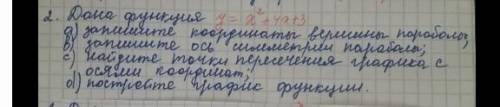 2. Дана функция y = x² + 4x + 3
a) запишите координаты вершины параболы;
b) запишите ось симметрии параболы;
c) найдите точки пересечения графика с
осями координат;
d) постройте график функции.